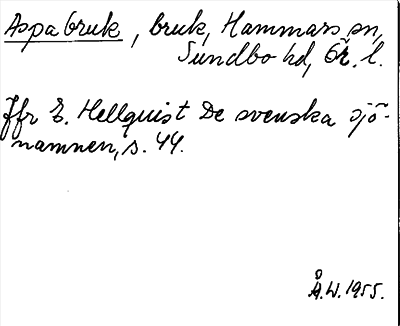 Aspabruk, bruk, Hammars sn,
Sundbo hd, Ör. l.
Jfr E. Hellquist De svenska sjö-
namnen, s. 44.
Å.W. 1955.